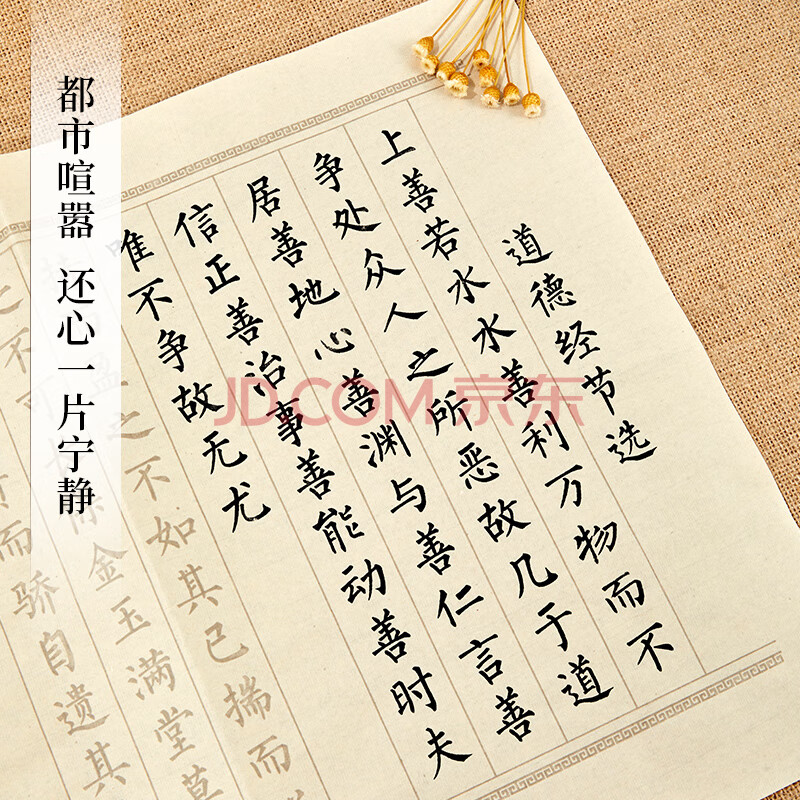 都市喧嚣 还心一片宁静
道德经节选
上善若水水善利万物而不
争处众人之所恶故几于道
居善地心善渊与善仁言善
信正善治事善能动善时夫
唯不争故无尤
之不如其已揣而
之不可长保金玉满堂
而骄自遗其
JD.COM 京东